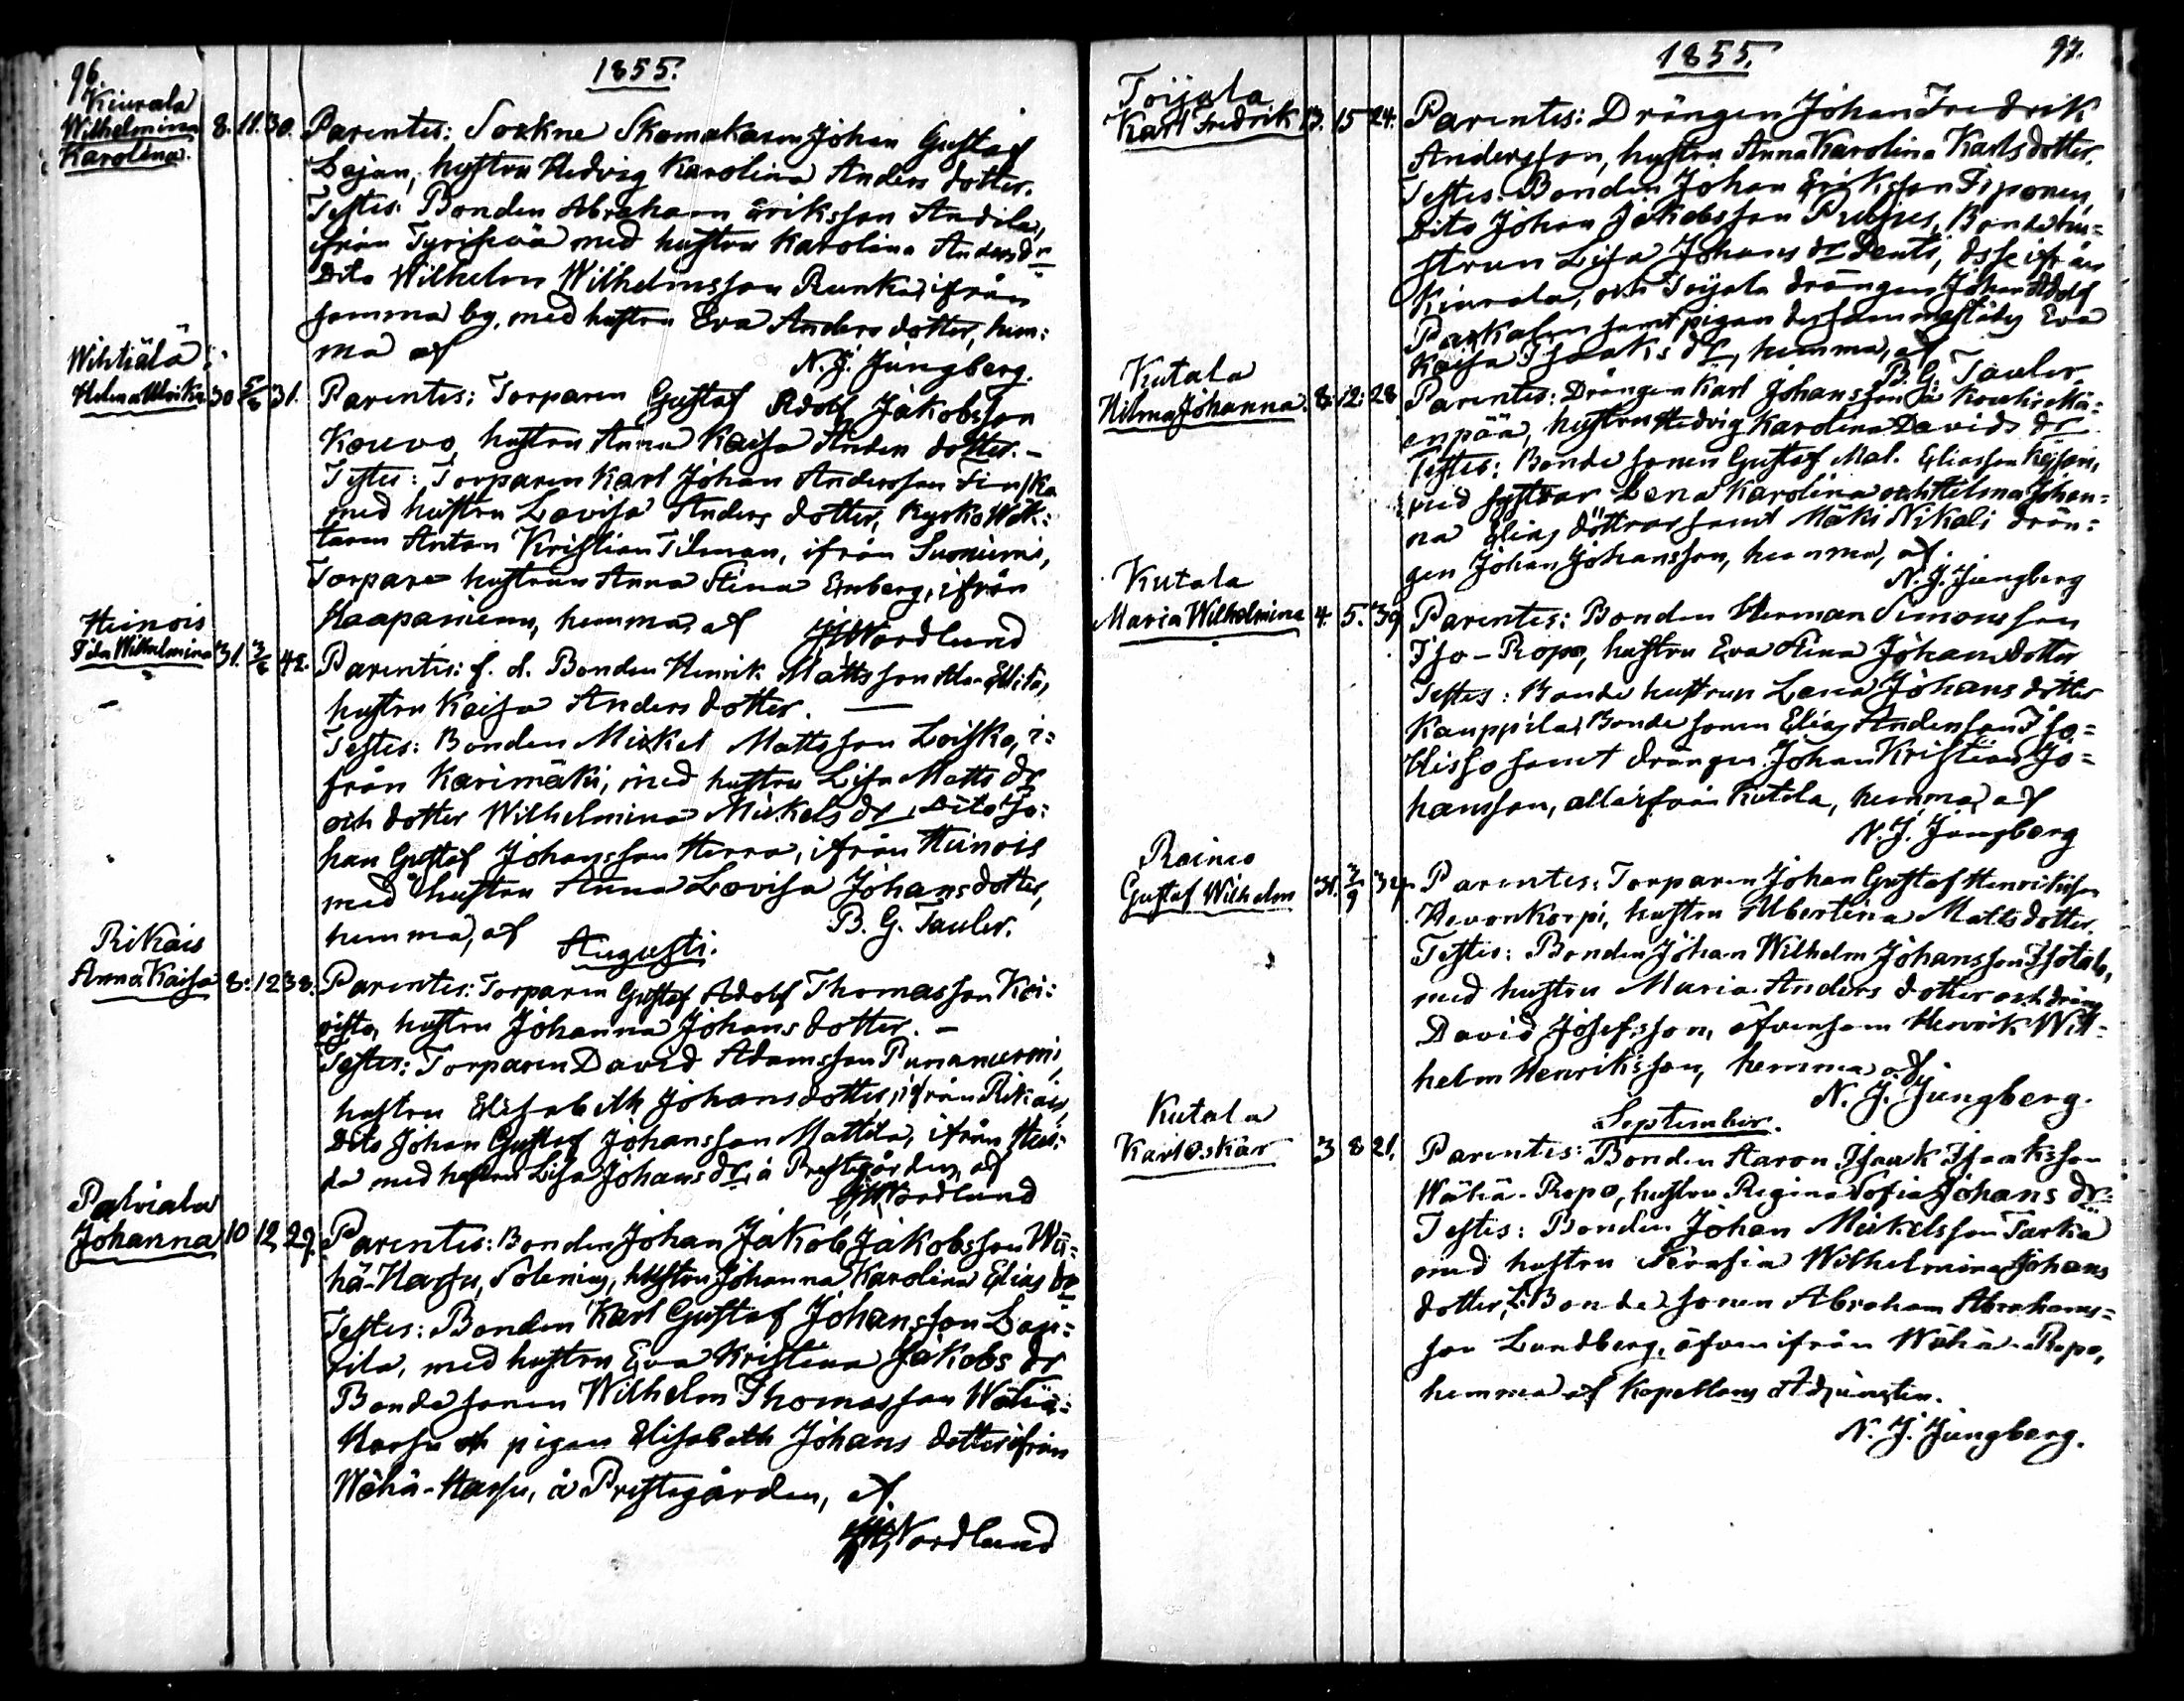 96.
1855.
Kiurala
Wilhelmina 8. 11. 30.
Karolina.
Parentes: Sockne Skomakaren Johan Gustaf
Lejan, hustru Hedvig Karolina Anders dotter.
Testes: Bonden Abraham äriksson Andila,
ifrån Tyrisevä med hustru Karolina Andersdr
Dito Wilhelm Wilhelmsson Runka, ifrån
samma by, med hustru Eva Anders dotter, hem:
ma af
N. J. Jungberg.
Wihtiälä
Helena Ulrika 30 5/8 31.
Parentes: Torparen Gustaf Adolf Jakobsson
Kouvo, hustru Anna Kaisa Anders dotter. –
Testes: Torparen Karl Johan Andersson
med hustru Lovisa Anders dotter, Kyrko Wäk:
taren Anton Kristian Tilman, ifrån Suoniemi,
Torpare hustrun Anna Stina Enberg, ifrån
Haapaniemi, hemma, af
Nordlund
Heinois
Fida Wilhelmina 31. 3/8 42.
Parentes: f. d. Bonden Henrik Mattsson
hustru Kaisa Anders dotter. —
Testes: Bonden Mickel Mattsson Loisko, i:
från Karimäki, med hustru Lisa Matts dr
och dotter Wilhelmina Mickels dr, Dito Jo:
han Gustaf Johansson Herra, ifrån Heinois
med hustru Anna Lovisa Johansdotter,
hemma, af
B. G. Tauler.
Augusti.
Rikais
Anna Kaisa 8: 12 38.
Parentes: Torparen Gustaf Adolf Thomasson Koi:
visto, hustru Johanna Johans dotter. –
Testes: Torparen David Adamsson Punanurmi,
hustru Elisabeth Johansdotter, ifrån Rikais,
Dito Johan Gustaf Johansson Mattila, ifrån
da med hustru Lisa Johans dr, å Prestgården, af
Nordlund
Palviala
Johanna 10 12 29.
Parentes: Bonden Johan Jakob Jakobsson Wä:
hä-Hassu, Solenius, hustru Johanna Karolina Elias dr
Testes: Bonden Karl Gustaf Johansson Lau:
rila, med hustru Eva Kristina Jakobs dr
Bonde sonen Wilhelm Thomasson Wähä:
Hassu och pigan Elisabeth Johans dotter ifrån
Wähä-Hassu, å Prestegården, af.
Nordlund
1855.
97.
Toijala
Karl Fredrik 13. 15 24.
Parentes: Drängen Johan Fredrik
Andersson, hustru Anna Karolina Karls dotter.
Testes: Bonden Johan Eriksson Piponen,
Dito Johan Jakobsson Bondehu=
strun Lisa Johans dr Penti, desse ifrån
Kiurala, och Toijala drängen Johan Adolf
samt pigan dersammastädes Eva
Kaisa Isaaks dr, hemma, af
B. G. Tauler.
Kutala
Hilma Johanna. 8: 12: 28
Parentes: Drängen Karl Johansson å
enpää, hustru Hedvig Karolina Davids dr
Testes: Bonde sonen Gustaf Mal. Eliasson
med systrar Lena Karolina och Hilma Johan=
na Elias döttrar samt Mäki Nikali drän:
gen Johan Johansson, hemma, af.
N. J. Jungberg
Kutala
Maria Wilhelmina 4. 5. 39
Parentes: Bonden Herman Simonsson
Iso-Ropo, hustru Eva Stina Johansdotter
Testes: Bonde hustrun Lena Johans dotter
Kauppila, Bonde sonen Elias Andersson Iso=
Elisso samt drängen Johan Kristian Jo=
hansson, alla ifrån Kutala, hemma, af
N. J. Jungberg
Roinis
Gustaf Wilhelm 31. 3/9 34.
Parentes: Torparen Johan Gustaf Henriksson
Hevonkorpi, hustru Albertina Matts dotter.
Testes: Bonden Johan Wilhelm Johansson Isotalo,
med hustru Maria Anders dotter och dräng
David Josefsson, äfvensom Henrik Wil=
helm Henriksson, hemma af
N. J. Jungberg.
September.
Kutala
Karl Oskar 3 8 21.
Parentes: Bonden Aaron Isaak Isaaksson
Wähä-Ropo, hustru Regina Sofia Johans dr
Testes: Bonden Johan Mickelsson Tarka
med hustru Serafia Wilhelmina Johans
dotter, Bonde sonen Abraham Abrahams=
son Lundberg, äfven ifrån Wähä-Ropo,
hemma af Kapellans Adjungten.
N. J. Jungberg.